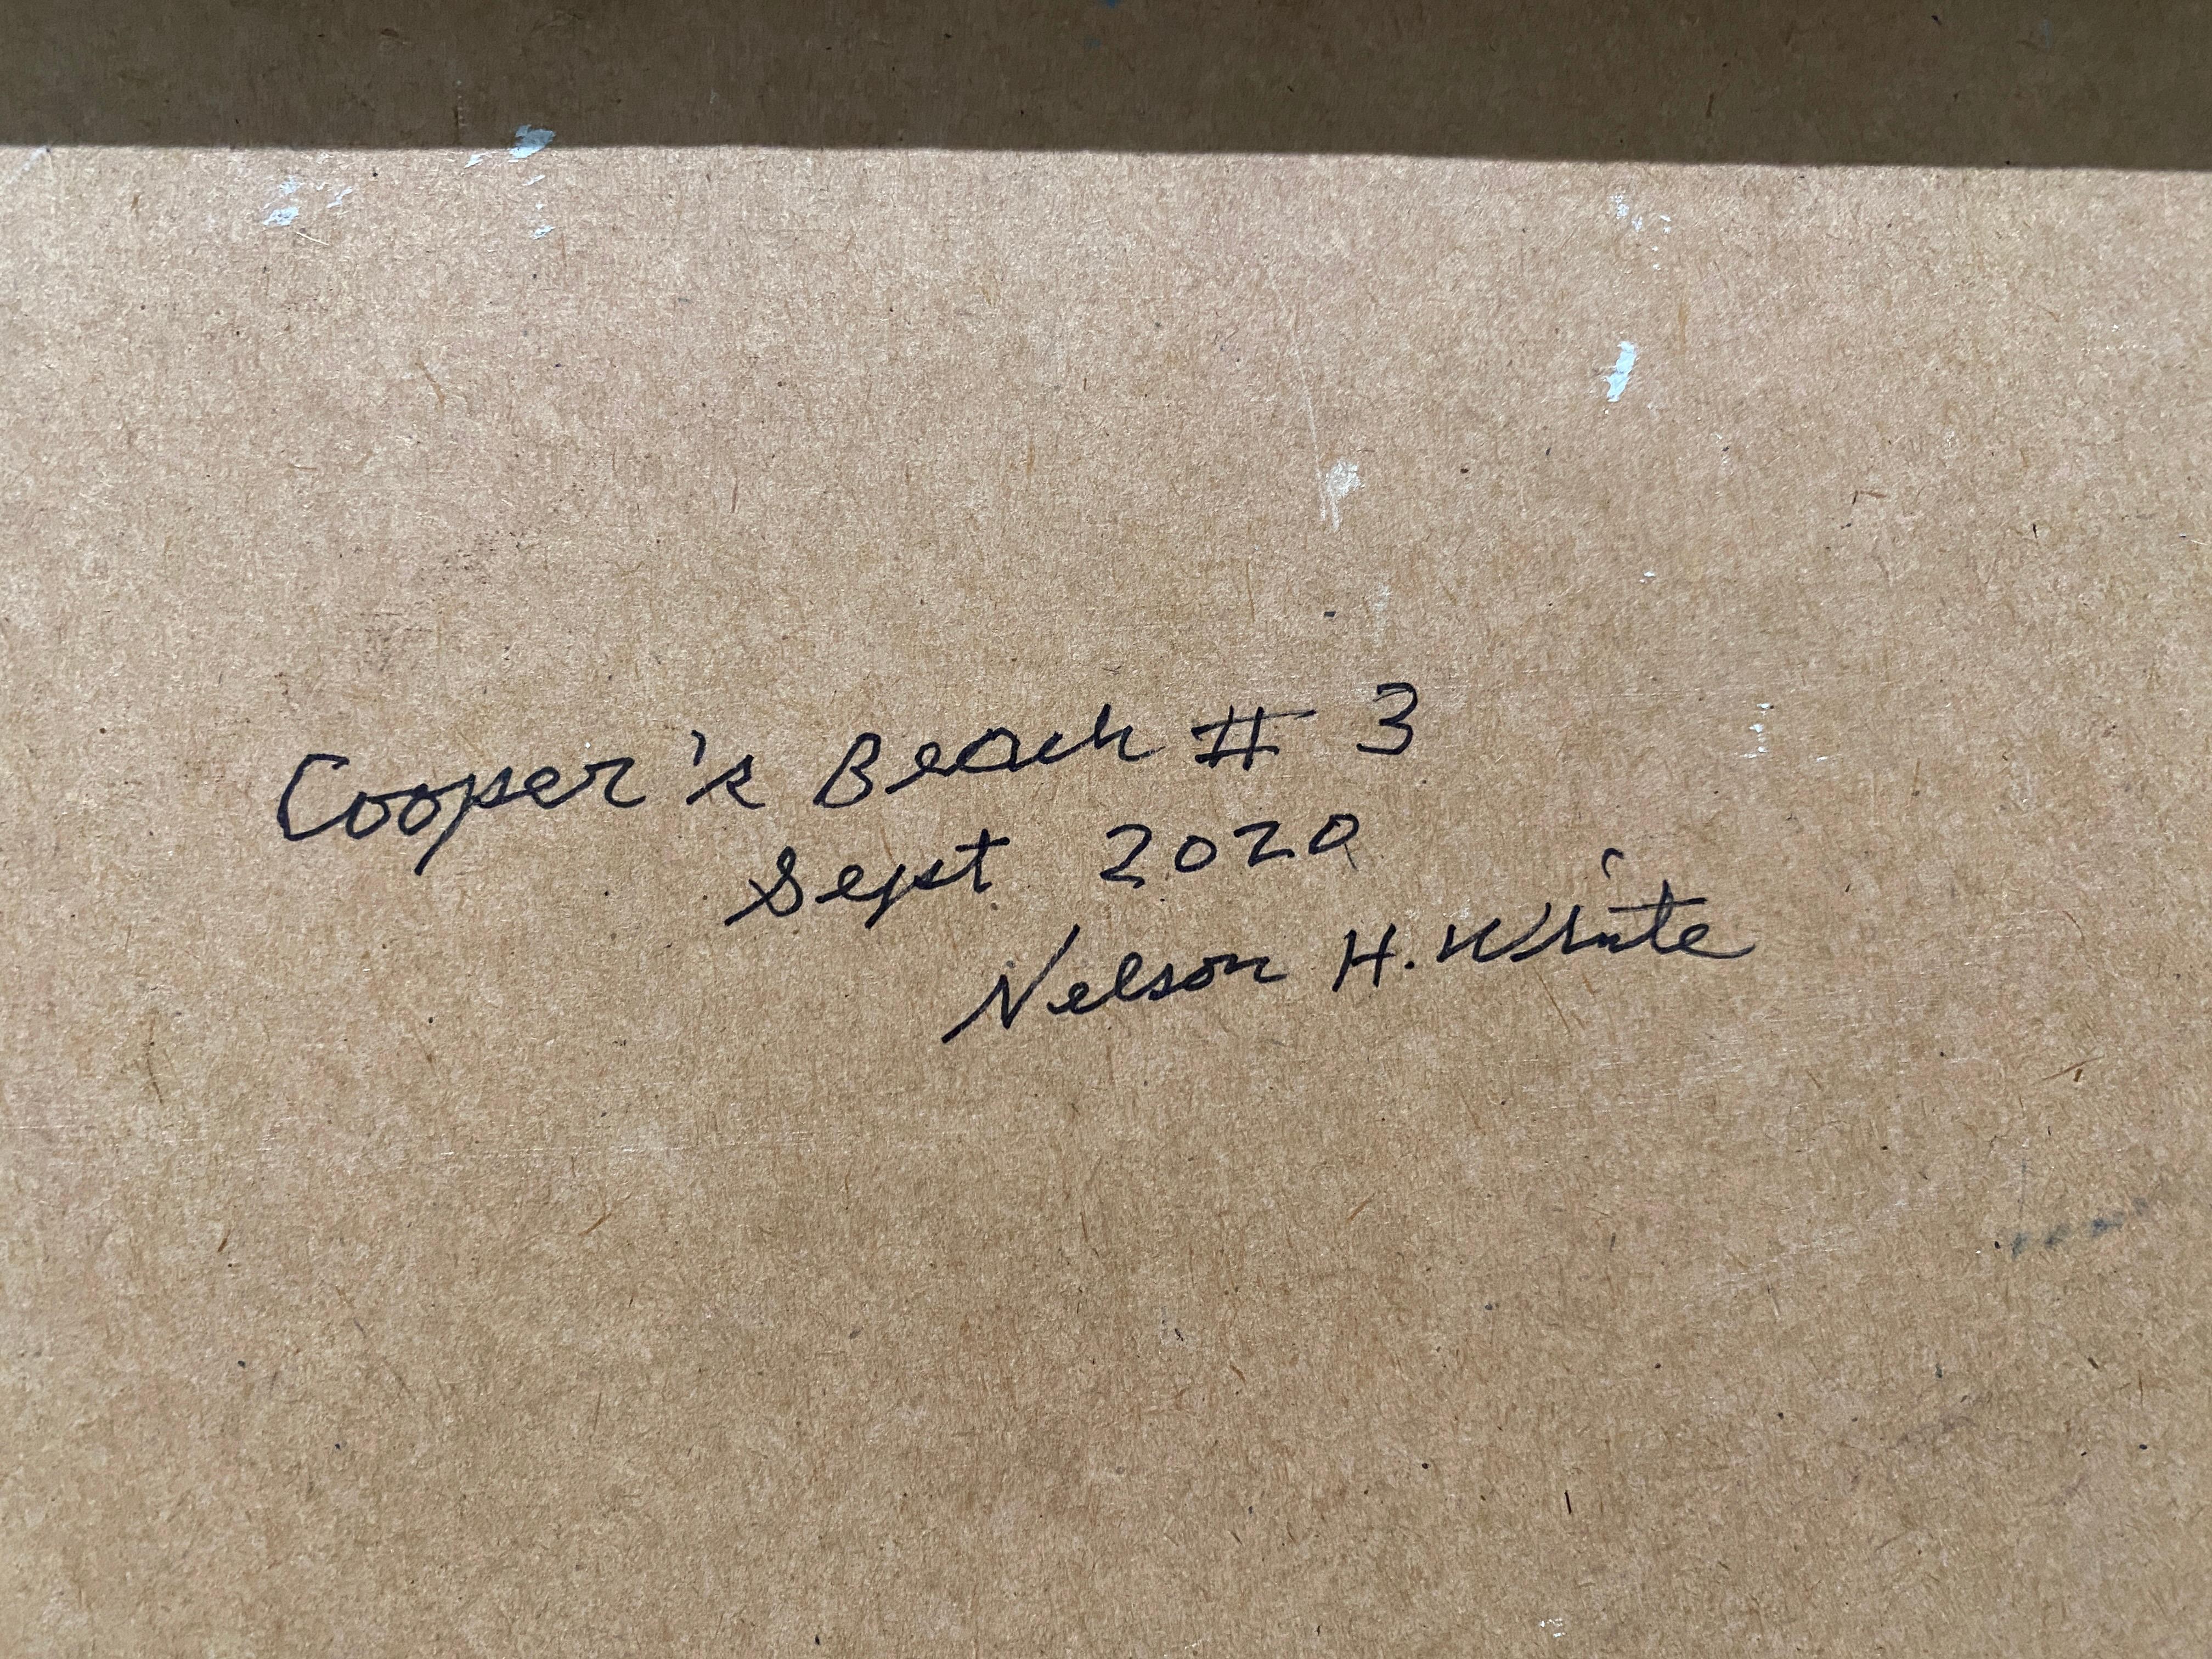 Cooper's Beach # 3
Sept 2020
Nelson H. White